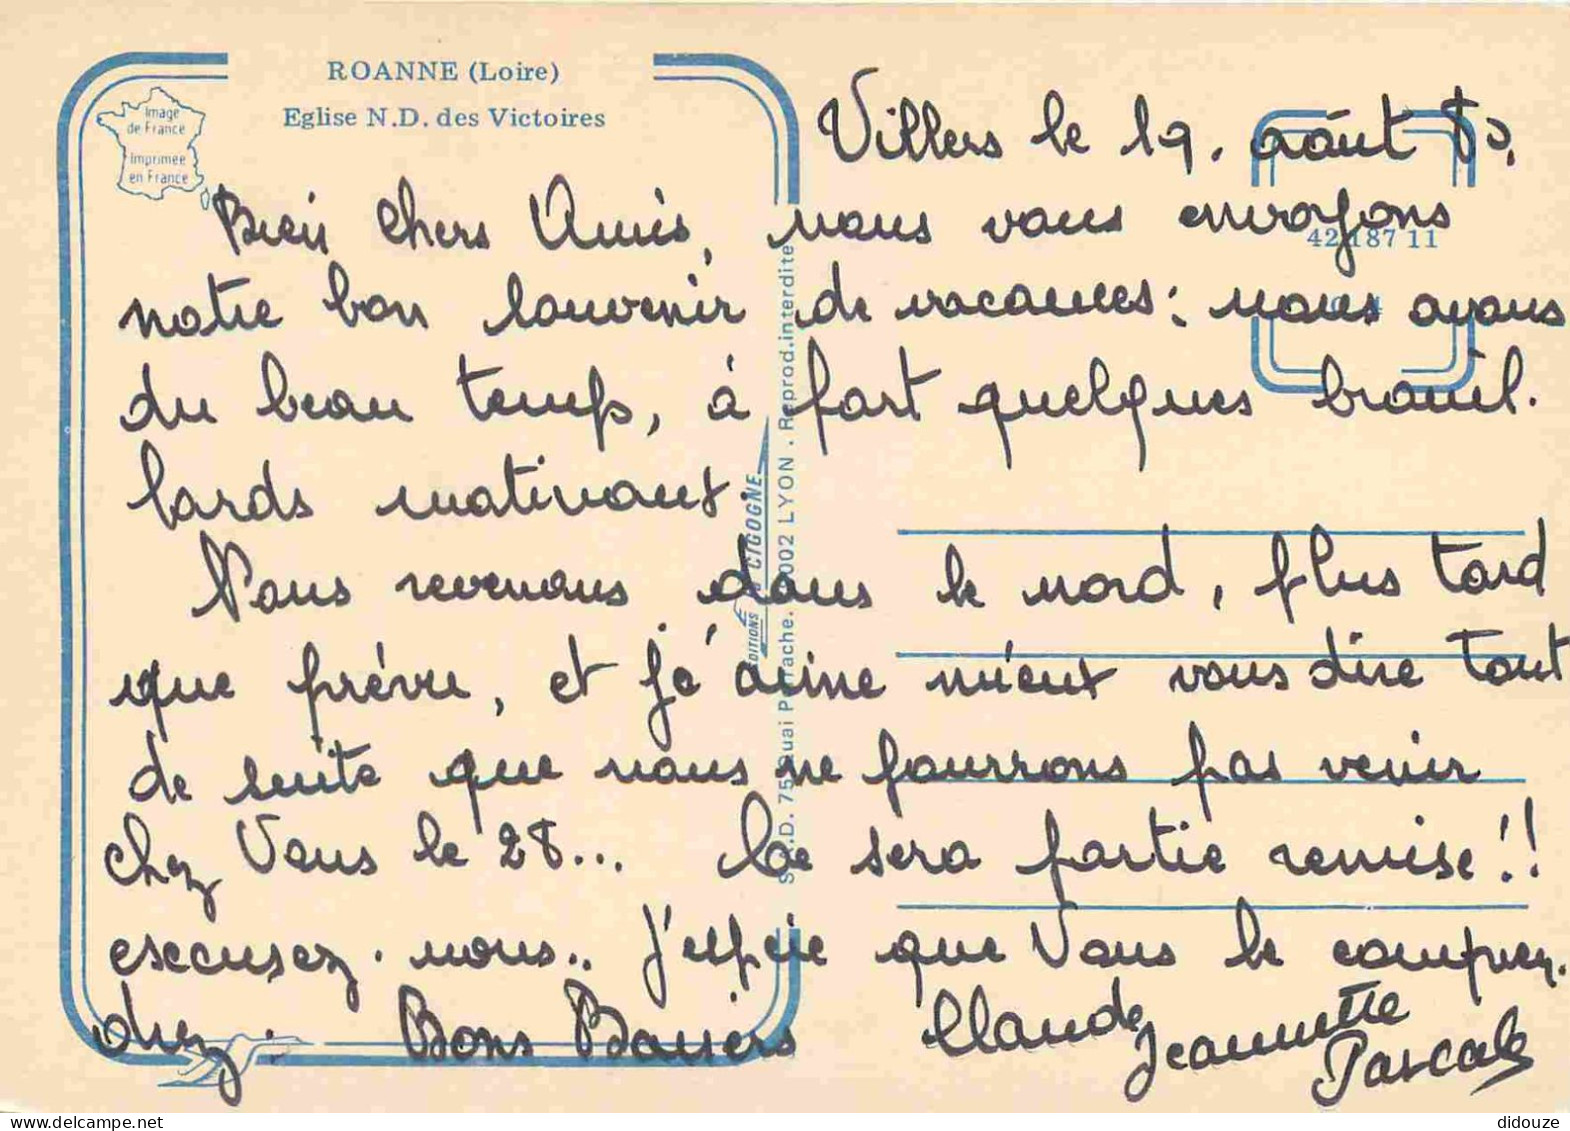 ROANNE (Loire)
Eglise N.D. des Victoires
Image
de France
Imprimée
en France
Villers le 19. août 80.
Bien chers Amis, nous vous envoyons
42 187 11
notre bon souvenir de vacances : nous avons
du beau temps, à part quelques brouil.
lards matinaux.
Nous revenons dans le nord, plus tard
que prévu, et j'aime mieux vous dire tout
de suite que nous ne pourrons pas venir
chez Vous le 28... Ce sera partie remise !!
excusez. nous.. J'espère que Vous le compren.
drez. Bons Baisers Claude
Jeannette
Pascale
EDITIONS CIGOGNE
75 Quai Perrache. 69002 LYON . Reprod. interdite
didouze